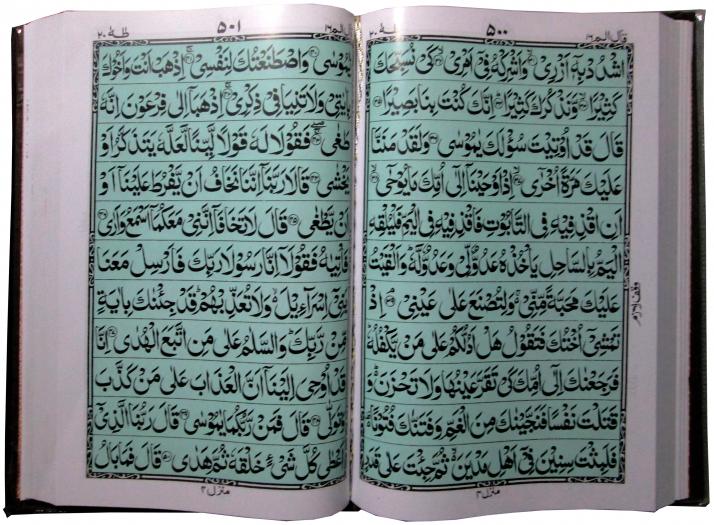 قال الم ١٦
٥٠٠
طٰهٰ ٢٠
اشْدُدْ بِهٖۤ اَزْرِیْ ۙ﴿۳۱﴾ وَ اَشْرِكْهُ فِیْۤ اَمْرِیْ ۙ﴿۳۲﴾ كَیْ نُسَبِّحَكَ
كَثِیْرًا ۙ﴿۳۳﴾ وَّ نَذْكُرَكَ كَثِیْرًا ؕ﴿۳۴﴾ اِنَّكَ كُنْتَ بِنَا بَصِیْرًا ﴿۳۵﴾
قَالَ قَدْ اُوْتِیْتَ سُؤْلَكَ یٰمُوْسٰی ﴿۳۶﴾ وَ لَقَدْ مَنَنَّا
عَلَیْكَ مَرَّةً اُخْرٰۤی ۙ﴿۳۷﴾ اِذْ اَوْحَیْنَاۤ اِلٰۤی اُمِّكَ مَا یُوْحٰۤی ۙ﴿۳۸﴾
اَنِ اقْذِفِیْهِ فِی التَّابُوْتِ فَاقْذِفِیْهِ فِی الْیَمِّ فَلْیُلْقِهِ
الْیَمُّ بِالسَّاحِلِ یَاْخُذْهُ عَدُوٌّ لِّیْ وَ عَدُوٌّ لَّهٗ ؕ وَ اَلْقَیْتُ
عَلَیْكَ مَحَبَّةً مِّنِّیْ ۚ۬ وَ لِتُصْنَعَ عَلٰی عَیْنِیْ ۘ﴿۳۹﴾ اِذْ
تَمْشِیْۤ اُخْتُكَ فَتَقُوْلُ هَلْ اَدُلُّكُمْ عَلٰی مَنْ یَّكْفُلُهٗ ؕ
فَرَجَعْنٰكَ اِلٰۤی اُمِّكَ كَیْ تَقَرَّ عَیْنُهَا وَ لَا تَحْزَنَ ؕ۬ وَ
قَتَلْتَ نَفْسًا فَنَجَّیْنٰكَ مِنَ الْغَمِّ وَ فَتَنّٰكَ فُتُوْنًا ۬۫
فَلَبِثْتَ سِنِیْنَ فِیْۤ اَهْلِ مَدْیَنَ ۬ۙ ثُمَّ جِئْتَ عَلٰی قَدَرٍ
وقف لازم
منزل ۴
٥٠١
طٰهٰ ٢٠
یّٰمُوْسٰی ﴿۴۰﴾ وَ اصْطَنَعْتُكَ لِنَفْسِیْ ۚ﴿۴۱﴾ اِذْهَبْ اَنْتَ وَ اَخُوْكَ
بِاٰیٰتِیْ وَ لَا تَنِیَا فِیْ ذِكْرِیْ ۚ﴿۴۲﴾ اِذْهَبَاۤ اِلٰی فِرْعَوْنَ اِنَّهٗ
طَغٰی ۚۖ﴿۴۳﴾ فَقُوْلَا لَهٗ قَوْلًا لَّیِّنًا لَّعَلَّهٗ یَتَذَكَّرُ اَوْ
یَخْشٰی ﴿۴۴﴾ قَالَا رَبَّنَاۤ اِنَّنَا نَخَافُ اَنْ یَّفْرُطَ عَلَیْنَاۤ اَوْ
اَنْ یَّطْغٰی ﴿۴۵﴾ قَالَ لَا تَخَافَاۤ اِنَّنِیْ مَعَكُمَاۤ اَسْمَعُ وَ اَرٰی ﴿۴۶﴾
فَاْتِیٰهُ فَقُوْلَاۤ اِنَّا رَسُوْلَا رَبِّكَ فَاَرْسِلْ مَعَنَا
بَنِیْۤ اِسْرَآءِیْلَ ۬ۙ وَ لَا تُعَذِّبْهُمْ ؕ قَدْ جِئْنٰكَ بِاٰیَةٍ
مِّنْ رَّبِّكَ ؕ وَ السَّلٰمُ عَلٰی مَنِ اتَّبَعَ الْهُدٰی ﴿۴۷﴾ اِنَّا
قَدْ اُوْحِیَ اِلَیْنَاۤ اَنَّ الْعَذَابَ عَلٰی مَنْ كَذَّبَ
وَ تَوَلّٰی ﴿۴۸﴾ قَالَ فَمَنْ رَّبُّكُمَا یٰمُوْسٰی ﴿۴۹﴾ قَالَ رَبُّنَا الَّذِیْۤ
اَعْطٰی كُلَّ شَیْءٍ خَلْقَهٗ ثُمَّ هَدٰی ﴿۵۰﴾ قَالَ فَمَا بَالُ
منزل ۴